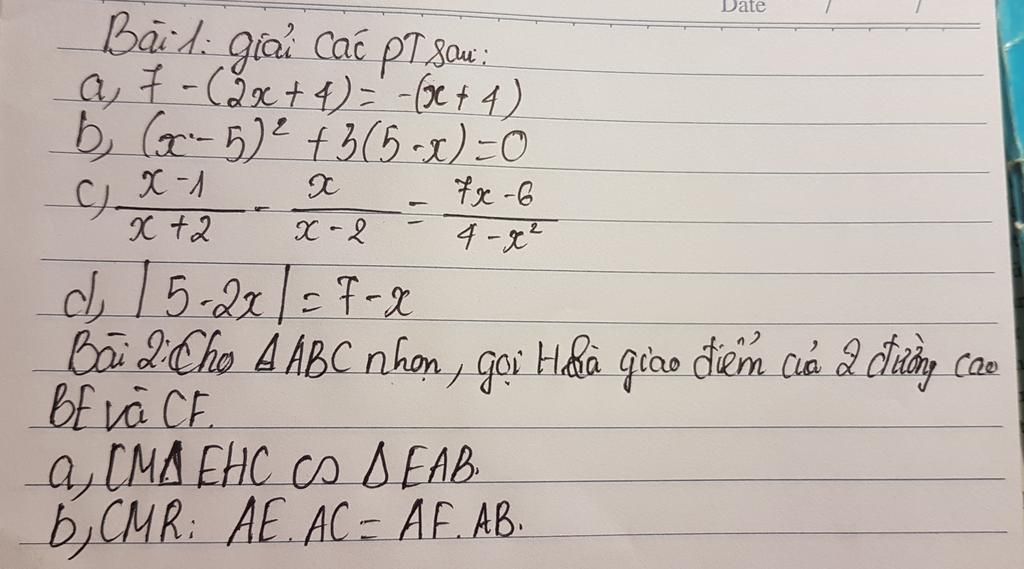 Date / /
Bài 1: giải các PT sau:
a, 7 - (2x + 4) = -(x + 4)
b, (x - 5)² + 3(5 - x) = 0
c) x - 1 / x + 2 - x / x - 2 = 7x - 6 / 4 - x²
d, |5 - 2x| = 7 - x
Bài 2: Cho Δ ABC nhọn, gọi H là giao điểm của 2 đường cao
BE và CF.
a, CM Δ EHC ∽ Δ EAB.
b, CMR: AE. AC = AF. AB.